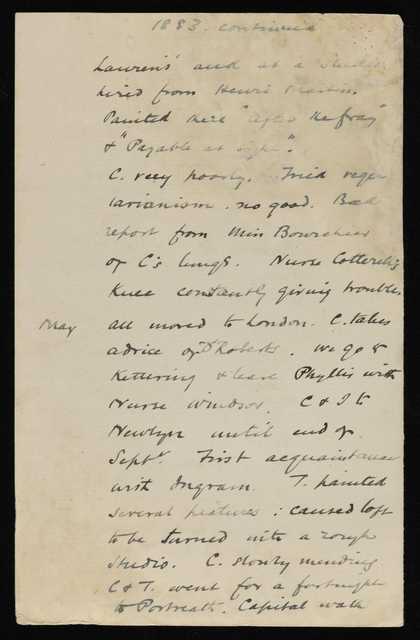 1883. continued
Laurens' and at a studio
hired from Henri Martin.
Painted here "After the fray"
& "Payable at sight".
C. very poorly. Tried vege
tarianism. no good. Bad
report from Miss
of C's lungs. Nurse Cotterell's
knee constantly giving trouble.
May all moved to London. C. takes
advice of Dr Roberts. We go to
Kettering & leave Phyllis with
Nurse Windsor. C & I to
Newlyn until end of
Septr. First acquaintance
with Ingram. T. painted
several pictures: caused loft
to be turned into a rough
studio. C. slowly mending
C & T. went for a fortnight
to Portreath. Capital walk